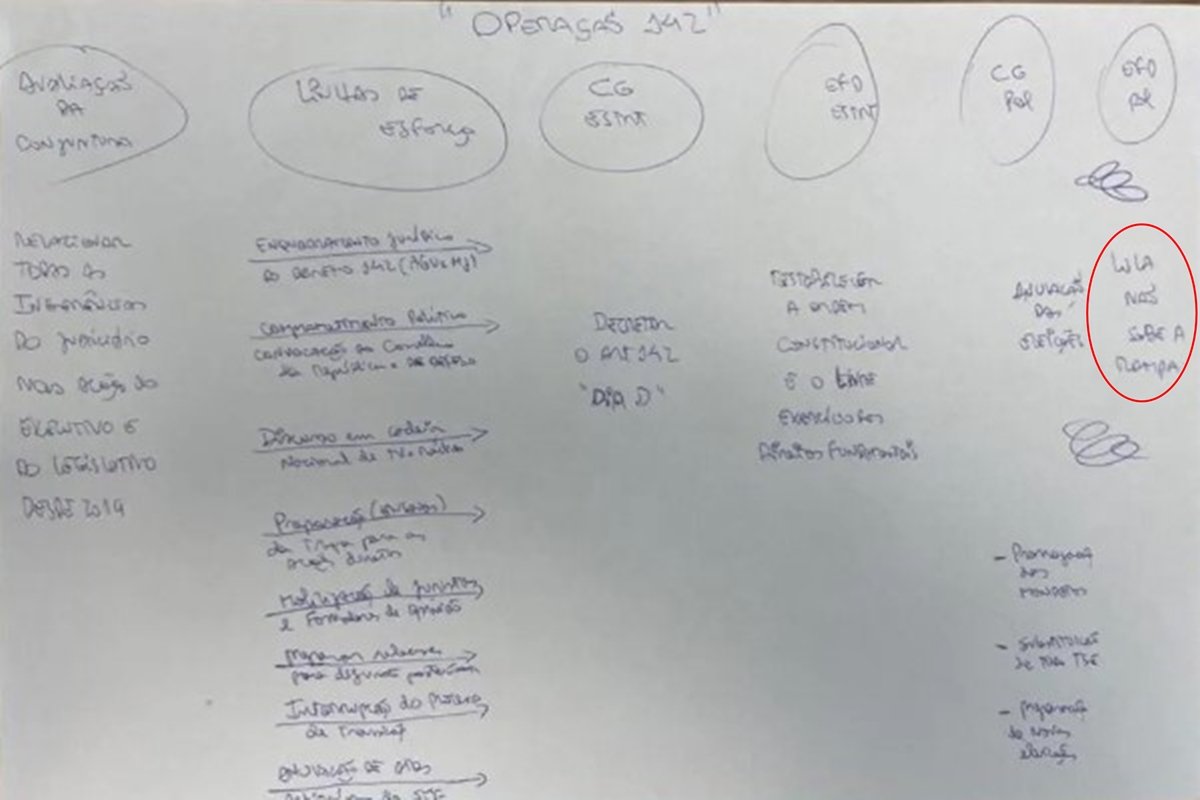 "OPERAÇÃO 142"
AVALIAÇÃO
DA
CONJUNTURA
RELACIONAR
TODAS AS
INTERFERÊNCIAS
DO JUDICIÁRIO
NAS AÇÕES DO
EXECUTIVO E
DO LEGISLATIVO
DESDE 2019
LINHAS DE
ESFORÇO
ENQUADRAMENTO JURÍDICO
DO DECRETO 142 (AGU e MJ)
COMPROMETIMENTO POLÍTICO
CONVOCAÇÃO DO CONSELHO
DA REPÚBLICA e DA DEFESA
DISCURSO EM CADEIA
NACIONAL DE TV e RÁDIO
PREPARAÇÃO
DA TROPA PARA AS
AÇÕES DIRETAS
MOBILIZAÇÃO DE JURISTAS
E FORMADORES DE OPINIÃO
PREPARAR
PARA
INTERRUPÇÃO DO PROCESSO
DE TRANSIÇÃO
ANULAÇÃO DE ATOS
CG
ESTRT
DECRETAR
O ART 142
"DIA D"
EFD
RESTABELECER
A ORDEM
CONSTITUCIONAL
E O LIVRE
EXERCÍCIO DOS
DIREITOS FUNDAMENTAIS
CG
POL
ANULAÇÃO
DAS
ELEIÇÕES
- PRORROGAÇÃO
DOS
MANDATOS
- SUBSTITUIÇÃO
DE TODO TSE
- PREPARAÇÃO
DE NOVAS
ELEIÇÕES
EFD
POL
LULA
NÃO
SOBE A
RAMPA